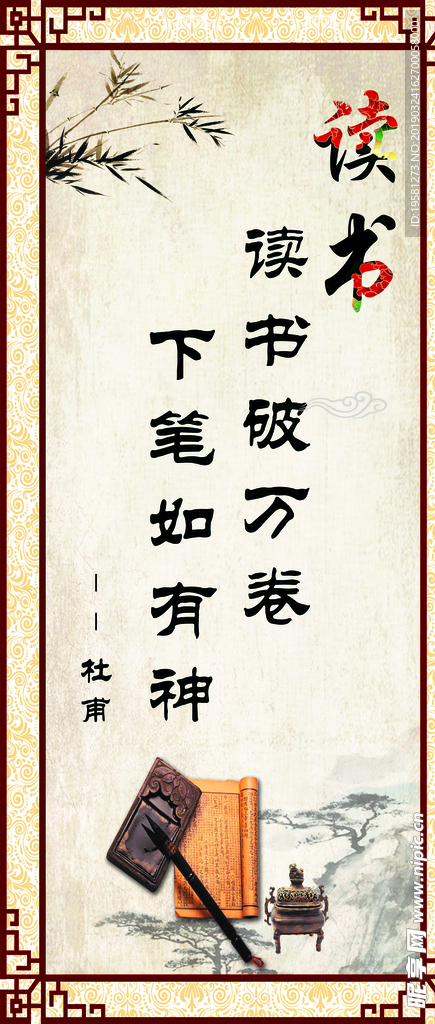 读书
读书破万卷
下笔如有神
——杜甫
ID:19581273 NO:20190324162700058000
昵享网 www.nipic.cn